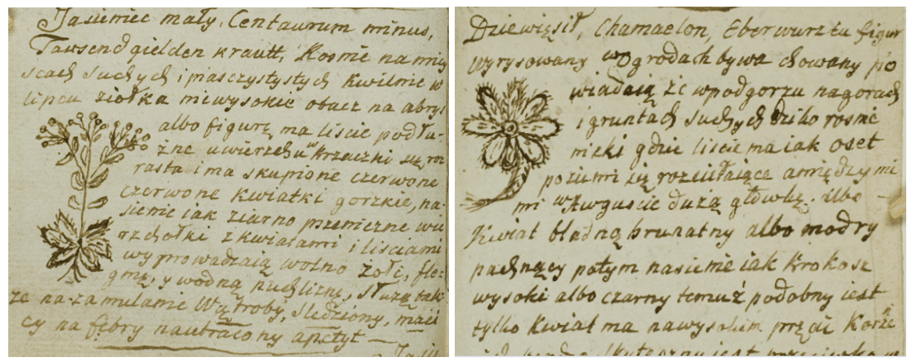 Jasieniec mały, Centaurum minus,
Tawsend gielden krautt, Rosnie na miey
scach suchych i piasczystych kwitnie w
lipcu ziołka niewysokie obacz na abrys
albo figurę ma liscie podłu-
żne u wierzchu w krzaczki się roz
rasta i ma skupione czerwone
czerwone kwiatki gorzkie, na-
sienie iak ziarno przeniczne wie
rzchołki z kwiatami i lisciami
wyprowadzaią wolno żołć, fle-
gmę, y wodną puchliznę, służą tak
że na zamulenie Wątroby, śledziony, maią
cy na febry nautracony apetyt —
Dziewięsił, Chamaelon, Eberwurz tu figur
wyrysowany w Ogrodach bywa chowany po
wiadaią że w podgorzu na gorach
i gruntach suchych dziko rosnie
niski gdzie liscie ma iak oset
po ziemi się rozciełaiące a między nie
mi w zwguscie dużą głowkę. Albo
Kwiat bladną brunatny albo modry
pachnący potym nasienie iak Krokosz
wysoki albo czarny temuż podobny iest
tylko kwiat ma na wysokim pręcie Korze